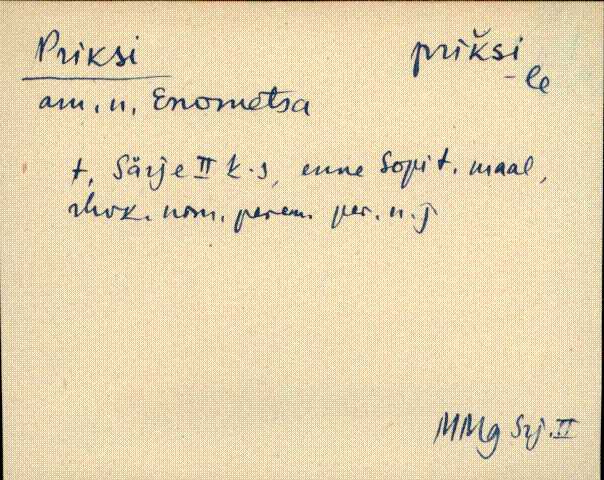 Priksi priḱsi
le
am. n. Enometsa
t. Särje II k.s, enne Sopi t. maal,
rhvk. nom. perem. per. n. j
MMg Srj. II